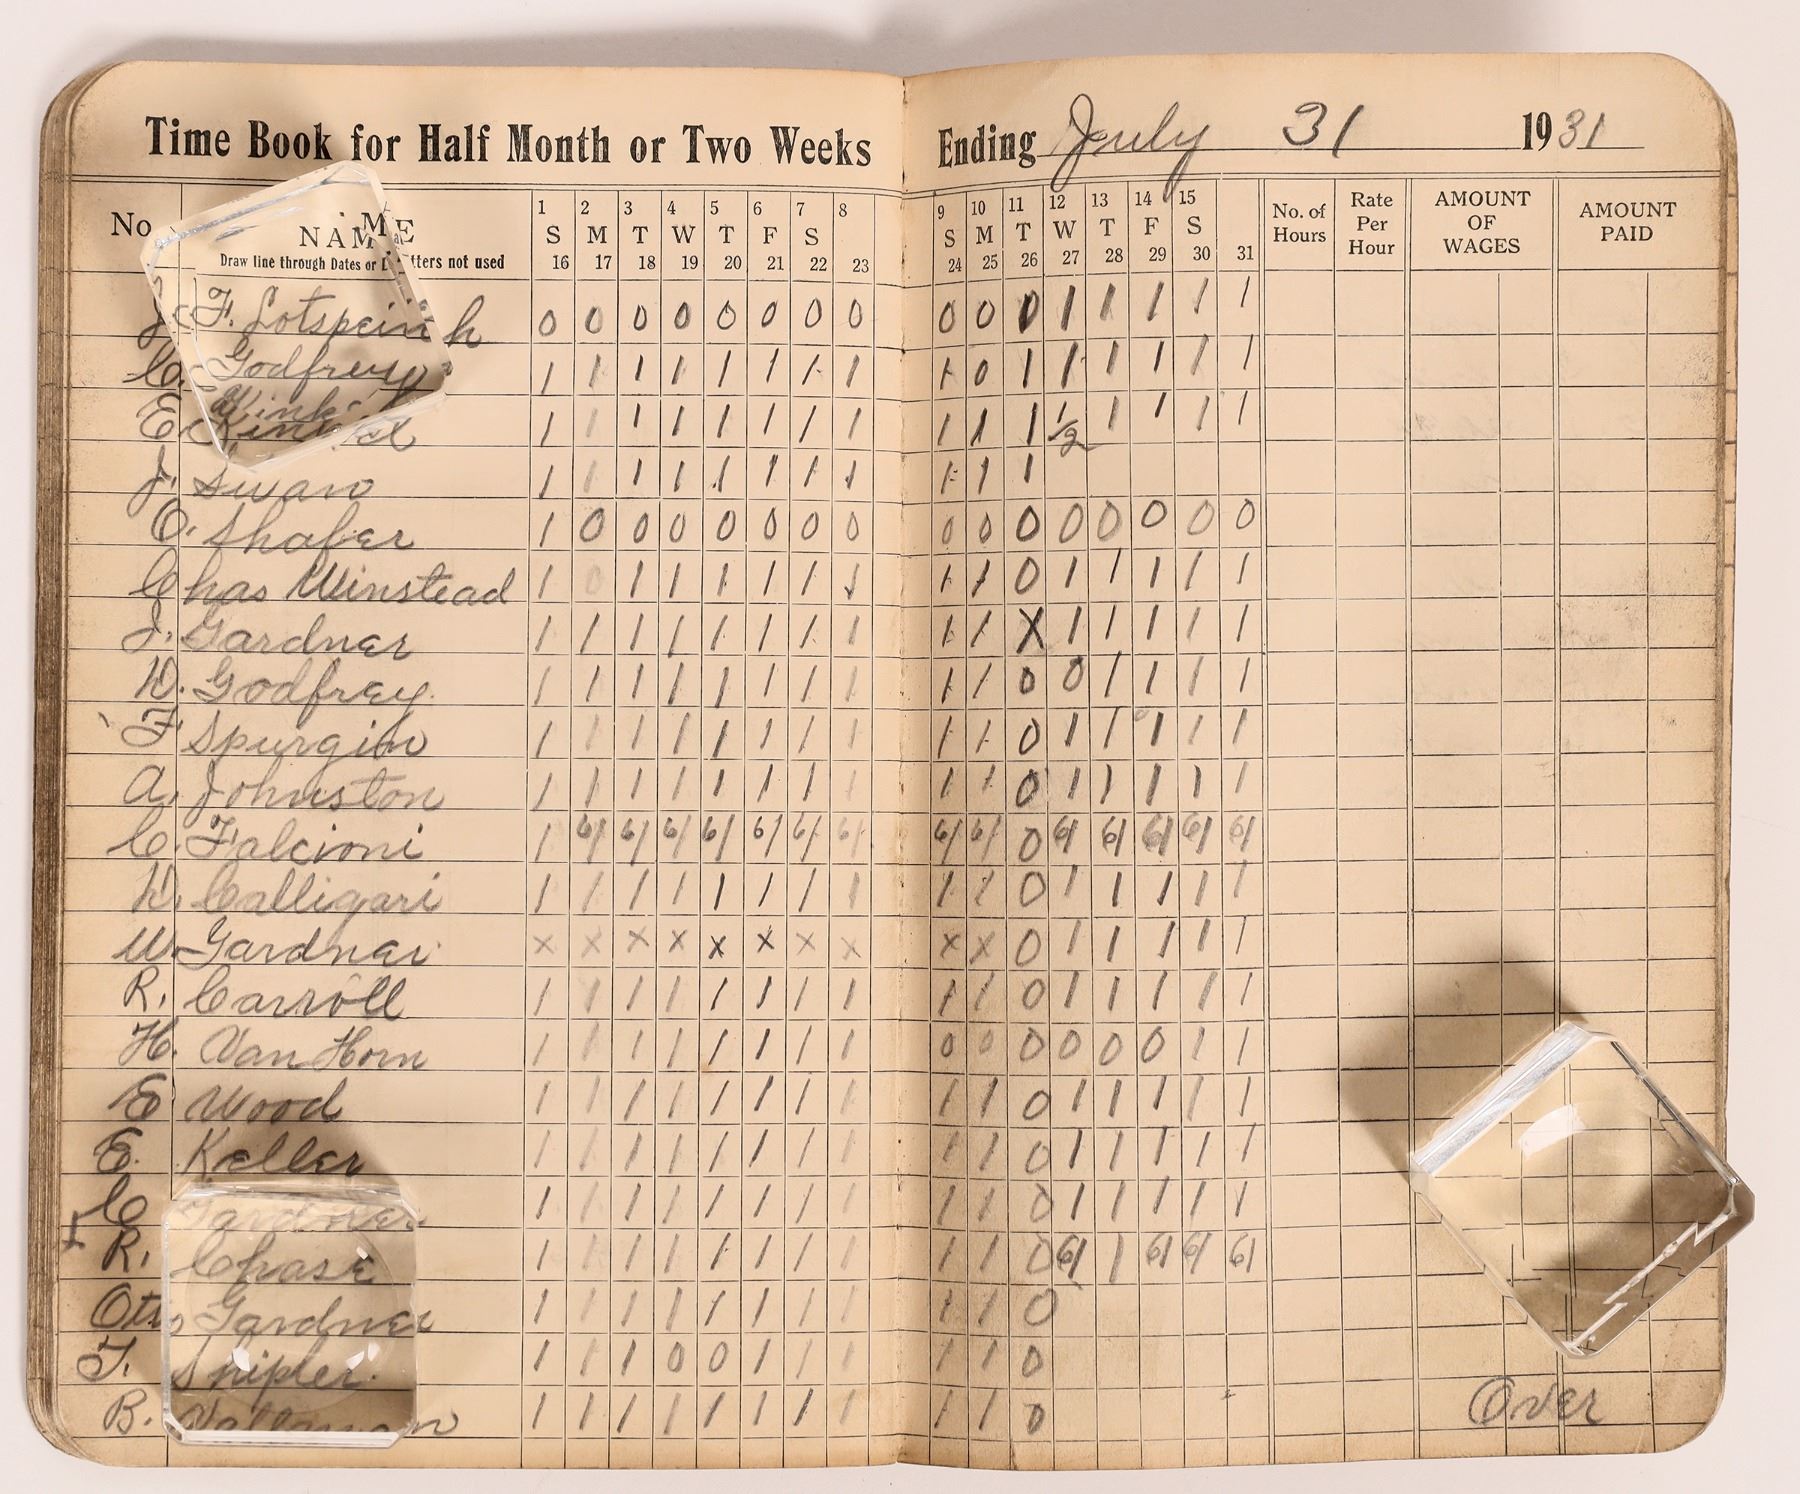 Time Book for Half Month or Two Weeks Ending July 31 1931
No. NAME 1 2 3 4 5 6 7 8 9 10 11 12 13 14 15 No. of Hours Rate Per Hour AMOUNT OF WAGES AMOUNT PAID
S M T W T F S S M T W T F S
Draw line through Dates or Letters not used 16 17 18 19 20 21 22 23 24 25 26 27 28 29 30 31
F. Lotspeich 0 0 0 0 0 0 0 0 0 0 0 1 1 1 1 1
C. Godfrey 1 1 1 1 1 1 1 1 1 0 1 1 1 1 1 1
E. 1 1 1 1 1 1 1 1 1 1 1 1/2 1 1 1 1
J. Swaro 1 1 1 1 1 1 1 1 1 1 1
O. Shafer 1 0 0 0 0 0 0 0 0 0 0 0 0 0 0 0
Chas Winstead 1 0 1 1 1 1 1 1 1 1 0 1 1 1 1 1
J. Gardner 1 1 1 1 1 1 1 1 1 1 X 1 1 1 1 1
D. Godfrey. 1 1 1 1 1 1 1 1 1 1 0 0 1 1 1 1
F Spurgin 1 1 1 1 1 1 1 1 1 1 0 1 1 1 1 1
A. Johnston 1 1 1 1 1 1 1 1 1 1 0 1 1 1 1 1
C. Falcioni 1 61 61 61 61 61 61 61 61 61 0 61 61 61 61 61
D. Calligari 1 1 1 1 1 1 1 1 1 1 0 1 1 1 1 1
W. Gardner x x x x x x x x x x 0 1 1 1 1 1
R. Carroll 1 1 1 1 1 1 1 1 1 1 0 1 1 1 1 1
H. Van Horn 1 1 1 1 1 1 1 1 0 0 0 0 0 0 1 1
E Wood 1 1 1 1 1 1 1 1 1 1 0 1 1 1 1 1
E. Keller 1 1 1 1 1 1 1 1 1 1 0 1 1 1 1 1
C Gardner 1 1 1 1 1 1 1 1 1 1 0 1 1 1 1 1
R. Chase 1 1 1 1 1 1 1 1 1 1 0 61 1 61 61 61
Otto Gardner 1 1 1 1 1 1 1 1 1 1 0
T. Snipler. 1 1 1 0 0 1 1 1 1 1 0
B. 1 1 1 1 1 1 1 1 1 1 0
Over